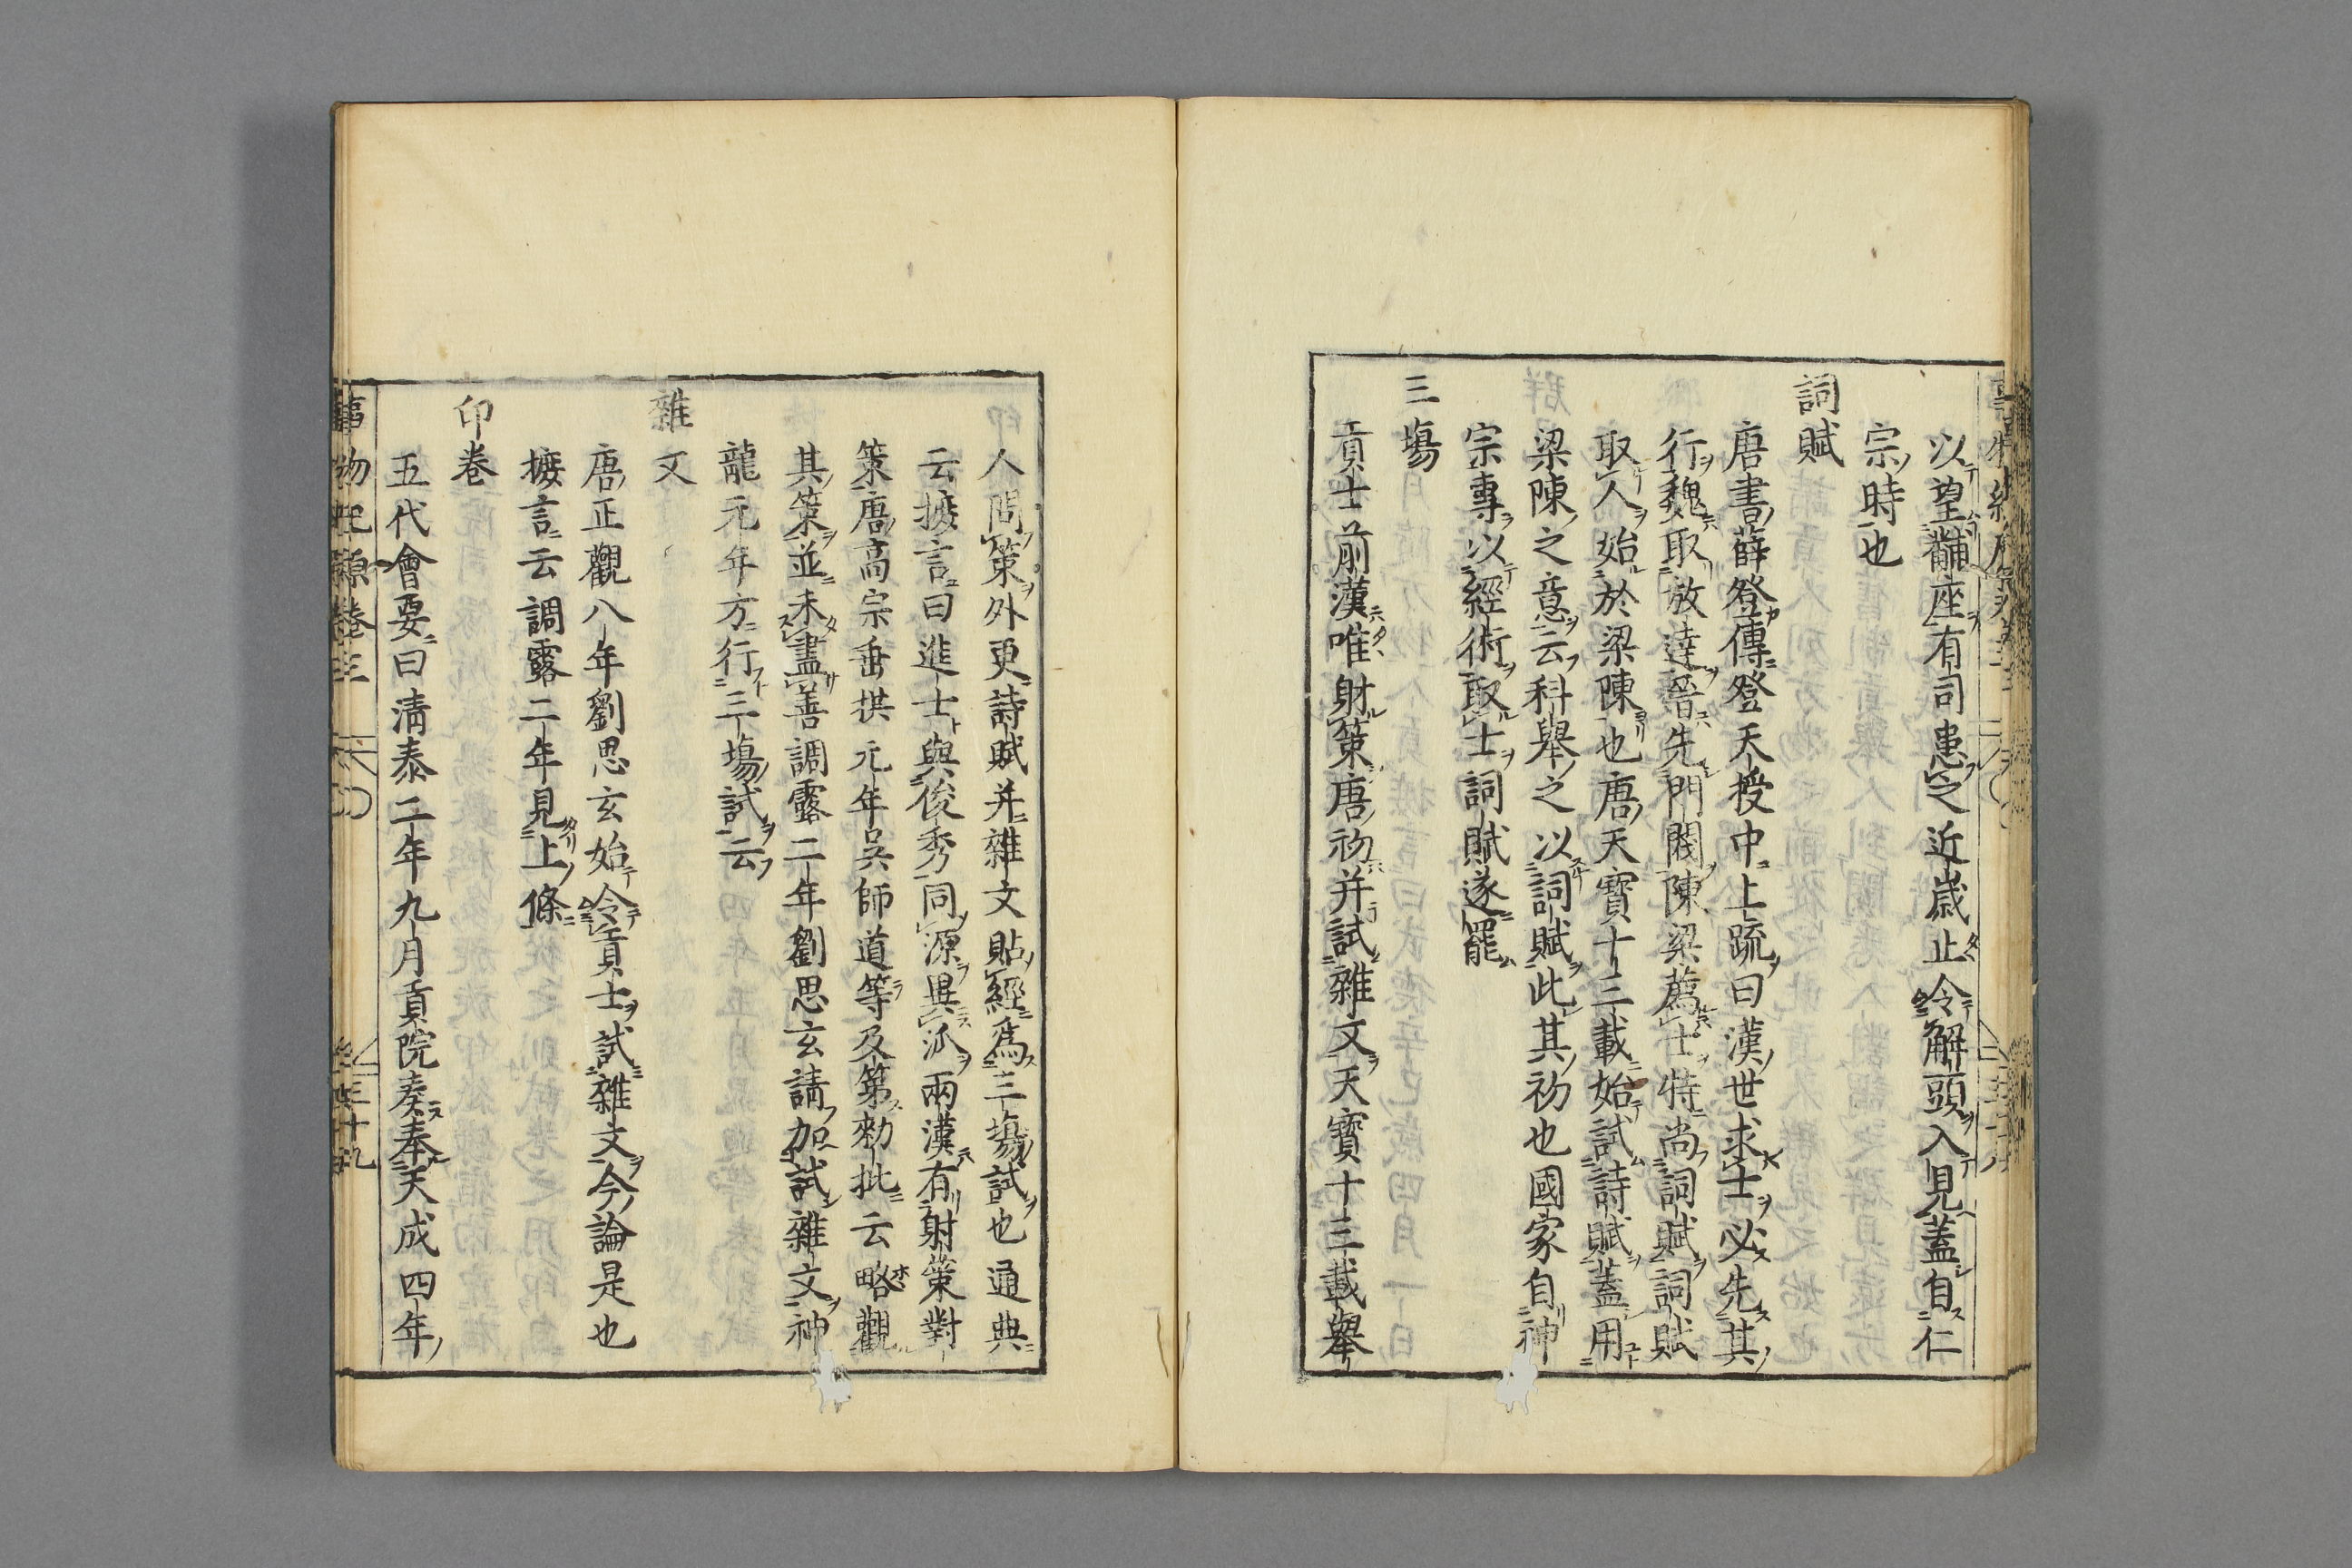 以望黼座有司患之近歳止令解頭入見蓋自仁
宗時也
詞賦
唐書薛登傳登天授中上疏曰漢世求士必先其
行魏取放達晉先門閥陳梁薦士特尚詞賦詞賦
取人始於梁陳也唐天寶十三載始試詩賦蓋用
梁陳之意云科舉之以詞賦此其初也國家自神
宗專以經術取士詞賦遂罷
三塲
貢士前漢唯射策唐初并試雜文天寶十三載舉
人問策外更詩賦并雜文貼經爲三塲試也通典
云摭言曰進士與俊秀同源異派兩漢有射策對
策唐高宗垂拱元年吳師道等及第勑批云略觀
其策並未盡善調露二年劉思玄請加試雜文神
龍元年方行三塲試云
雜文
唐正觀八年劉思玄始令貢士試雜文今論是也
摭言云調露二年見上條
印卷
五代會要曰淸泰二年九月貢院奏奉天成四年
事物紀原卷三